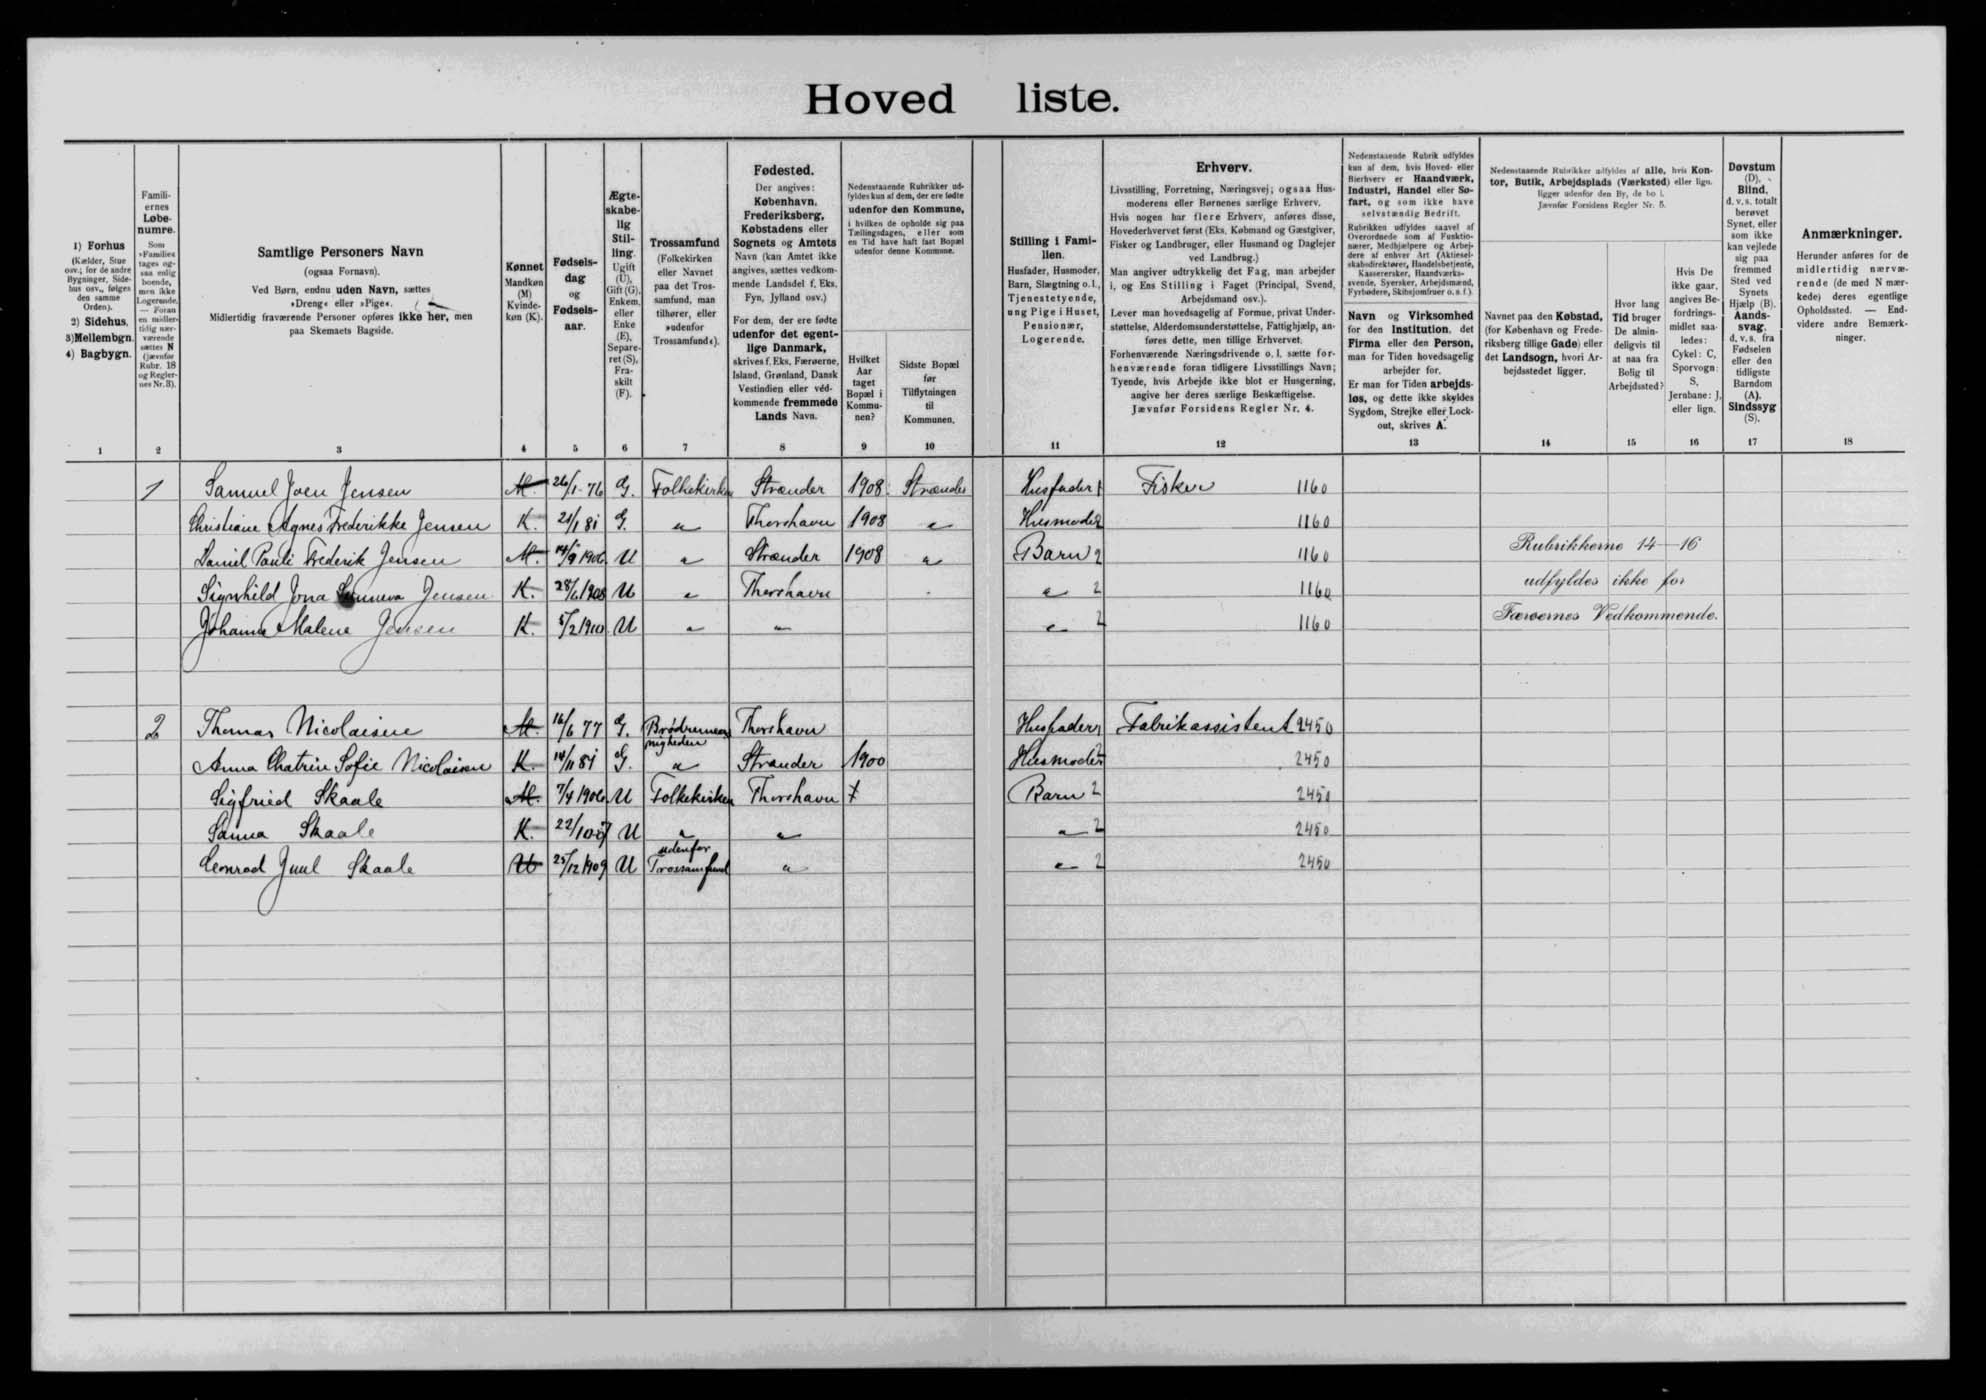 Hoved liste.
1) Forhus
(Kælder, Stue
osv.; for de andre
Bygninger, Side-
hus osv., følges
den samme
Orden).
2) Sidehus,
3) Mellembgn.
4) Bagbygn.
Famili-
ernes
Løbe-
numre.
Som
»Familie«
tages og-
saa enlig
boende,
men ikke
Logerende.
— Foran
en midler-
tidig nær-
værende
sættes N
(jævnfør
Rubr. 18
og Regler-
nes Nr. 3).
Samtlige Personers Navn
(ogsaa Fornavn).
Ved Børn, endnu uden Navn, sættes
»Dreng« eller »Pige«.
Midlertidig fraværende Personer opføres ikke her, men
paa Skemaets Bagside.
Kønnet
Mandkøn
(M)
Kvinde-
køn (K).
Fødsels-
dag
og
Fødsels-
aar.
Ægte-
skabe-
lig
Stil-
ling.
Ugift
(U),
Gift (G),
Enkem.
eller
Enke
(E),
Separe-
ret (S),
Fra-
skilt
(F).
Trossamfund
(Folkekirken
eller Navnet
paa det Tros-
samfund, man
tilhører, eller
»udenfor
Trossamfund«).
Fødested.
Der angives:
København,
Frederiksberg,
Købstadens eller
Sognets og Amtets
Navn (kan Amtet ikke
angives, sættes vedkom-
mende Landsdel f. Eks.
Fyn, Jylland osv.)
For dem, der ere fødte
udenfor det egent-
lige Danmark,
skrives f. Eks. Færøerne,
Island, Grønland, Dansk
Vestindien eller ved-
kommende fremmede
Lands Navn.
Nedenstaaende Rubrikker ud-
fyldes kun af dem, der ere fødte
udenfor den Kommune,
i hvilken de opholde sig paa
Tællingsdagen, eller som
en Tid have haft fast Bopæl
udenfor denne Kommune.
Hvilket
Aar
taget
Bopæl i
Kommu-
nen?
Sidste Bopæl
før
Tilflytningen
til
Kommunen.
Stilling i Fami-
lien.
Husfader, Husmoder,
Barn, Slægtning o. l.,
Tjenestetyende,
ung Pige i Huset,
Pensionær,
Logerende.
Erhverv.
Livsstilling, Forretning, Næringsvej; ogsaa Hus-
moderens eller Børnenes særlige Erhverv.
Hvis nogen har flere Erhverv, anføres disse,
Hovederhvervet først (Eks. Købmand og Gæstgiver,
Fisker og Landbruger, eller Husmand og Daglejer
ved Landbrug.)
Man angiver udtrykkelig det Fag, man arbejder
i, og Ens Stilling i Faget (Principal, Svend,
Arbejdsmand osv.).
Lever man hovedsagelig af Formue, privat Under-
støttelse, Alderdomsunderstøttelse, Fattighjælp, an-
føres dette, men tillige Erhvervet.
Forhenværende Næringsdrivende o. l. sætte for-
henværende foran tidligere Livsstillings Navn;
Tyende, hvis Arbejde ikke blot er Husgerning,
angive her deres særlige Beskæftigelse.
Jævnfør Forsidens Regler Nr. 4.
Nedenstaaende Rubrik udfyldes
kun af dem, hvis Hoved- eller
Bierhverv er Haandværk,
Industri, Handel eller Sø-
fart, og som ikke have
selvstændig Bedrift.
Rubrikken udfyldes saavel af
Overordnede som af Funktio-
nærer, Medhjælpere og Arbej-
dere af enhver Art (Aktiesel-
skabsdirektører, Handelsbetjente,
Kasserersker, Haandværks-
svende, Syersker, Arbejdsmænd,
Fyrbødere, Skibsjomfruer o. s. f.).
Navn og Virksomhed
for den Institution, det
Firma eller den Person,
man for Tiden hovedsagelig
arbejder for.
Er man for Tiden arbejds-
løs, og dette ikke skyldes
Sygdom, Strejke eller Lock-
out, skrives A.
Nedenstaaende Rubrikker udfyldes af alle, hvis Kon-
tor, Butik, Arbejdsplads (Værksted) eller lign.
ligger udenfor den By, de bo i.
Jævnfør Forsidens Regler Nr. 5.
Navnet paa den Købstad,
(for København og Frede-
riksberg tillige Gade) eller
det Landsogn, hvori Ar-
bejdsstedet ligger.
Hvor lang
Tid bruger
De almin-
deligvis til
at naa fra
Bolig til
Arbejdssted?
Hvis De
ikke gaar,
angives Be-
fordrings-
midlet saa-
ledes:
Cykel: C,
Sporvogn:
S,
Jernbane: J,
eller lign.
Døvstum
(D),
Blind,
d. v. s. totalt
berøvet
Synet, eller
som ikke
kan vejlede
sig paa
fremmed
Sted ved
Synets
Hjælp (B).
Aands-
svag,
d. v. s. fra
Fødselen
eller den
tidligste
Barndom
(A),
Sindssyg
(S).
Anmærkninger.
Herunder anføres for de
midlertidig nærvæ-
rende (de med N mær-
kede) deres egentlige
Opholdssted. — End-
videre andre Bemærk-
ninger.
1 2 3 4 5 6 7 8 9 10 11 12 13 14 15 16 17 18
1 Samuel Joen Jensen M. 26/1-76 G. Folkekirken Strænder 1908 Strænder Husfader 1 Fisker 1160
Christiane Agnes Frederikke Jensen K. 21/1 81 G. " Thorshavn 1908 " Husmoder 2 1160
Daniel Pauli Frederik Jensen M. 14/9 1906 U " Strænder 1908 " Barn 2 1160
Rubrikkerne 14—16
Signhild Jona Jensen K. 28/6 1908 U " Thorshavn " 2 1160
udfyldes ikke for
Johanna Malene Jensen K. 5/2 1910 U " " " 2 1160
Færøernes Vedkommende.
2 Thomas Nicolaisen M. 16/6 77 G. Brødremenigheden Thorshavn Husfader 1 Fabrikassistent 2450
Anna Chatrine Sofie Nicolaisen K. 14/11 81 G. " Strander 1900 Husmoder 2 2450
Sigfried Skaale M. 7/4 1906 U Folkekirken Thorshavn Barn 2 2450
Sanna Skaale K. 22/10 07 U " " " 2 2450
Conrad Juul Skaale M 25/12 1909 U udenfor Trossamfund " " 2 2450